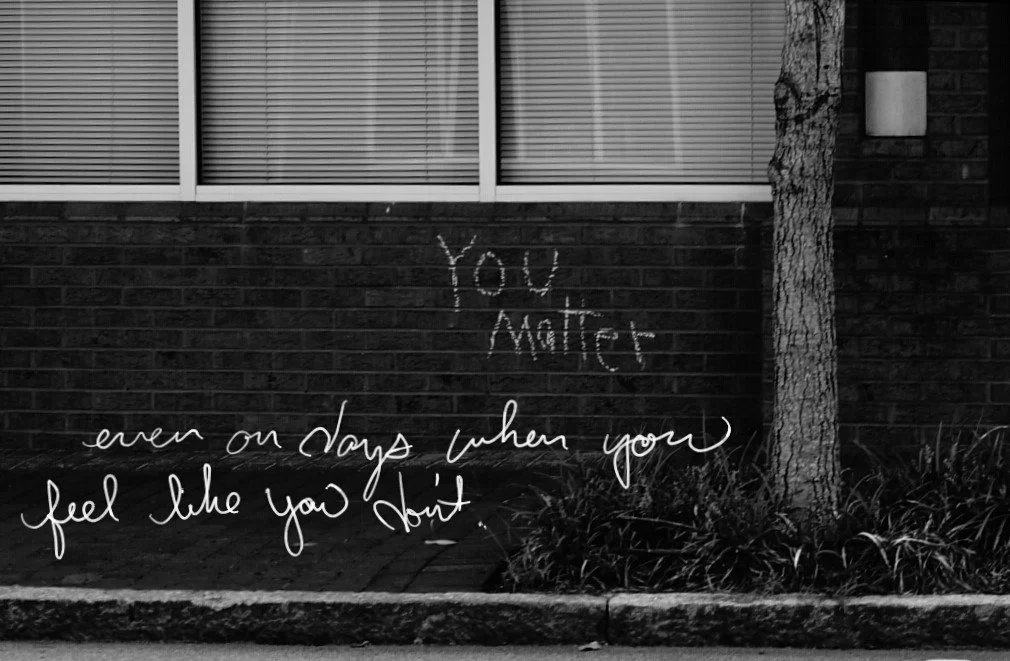 You
Matter
even on days when you
feel like you don't.